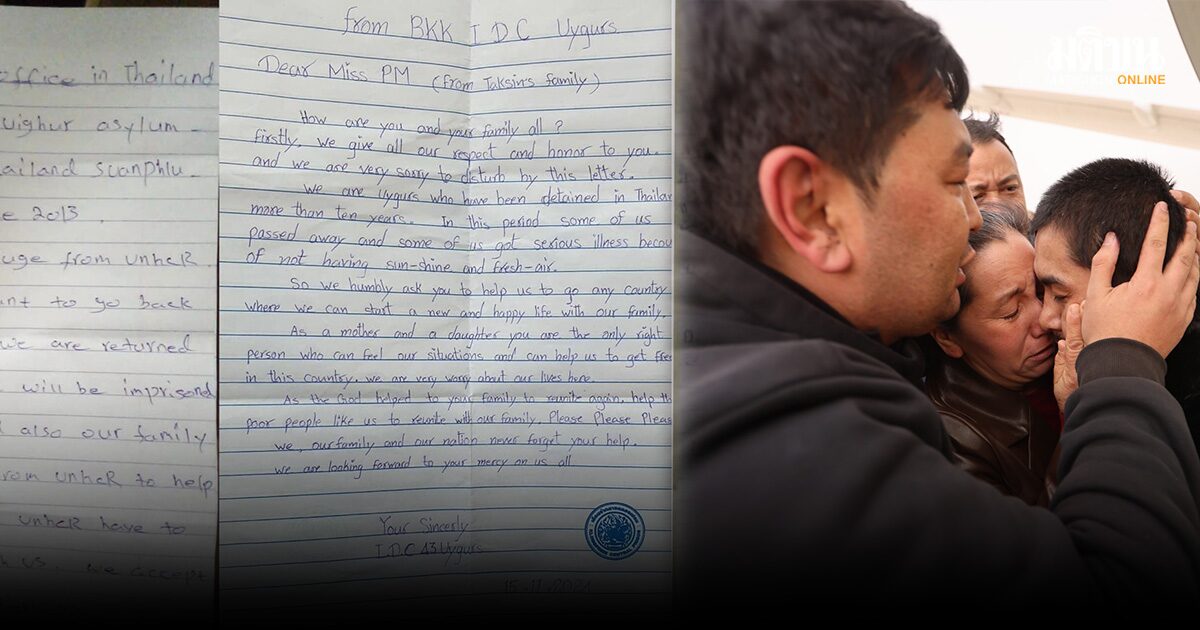 office in Thailand
uighur asylum -
ailand suanphlu -
e 2013 .
uge from unhcR
nt to go back
we are returned
will be imprisond
also our family
rom unhcR to help
unhcR have to
us. we accept
from BKK I D C Uygurs
Dear Miss PM (from Taksin's family)
How are you and your family all ?
firstly, we give all our respect and honor to you.
and we are very sorry to deturb by this letter.
We are Uygurs who have been detained in Thailan
more than ten years. In this period some of us
passed away and some of us got serious illness becou
of not having sun-shine and fresh-air.
So we humbly ask you to help us to go any country
where we can start a new and happy life with our family.
As a mother and a daughter you are the only right
person who can feel our situations and can help us to get free
in this country. we are very worry about our lives here.
As the God helped to your family to reunite again, help th
poor people like us to reunite with our family. Please Please Pleas
we, our family and our nation never forget your help.
we are looking forward to your mercy on us all
Your Sincerly
I.D.C 43 Uygurs
มติชน
ONLINE